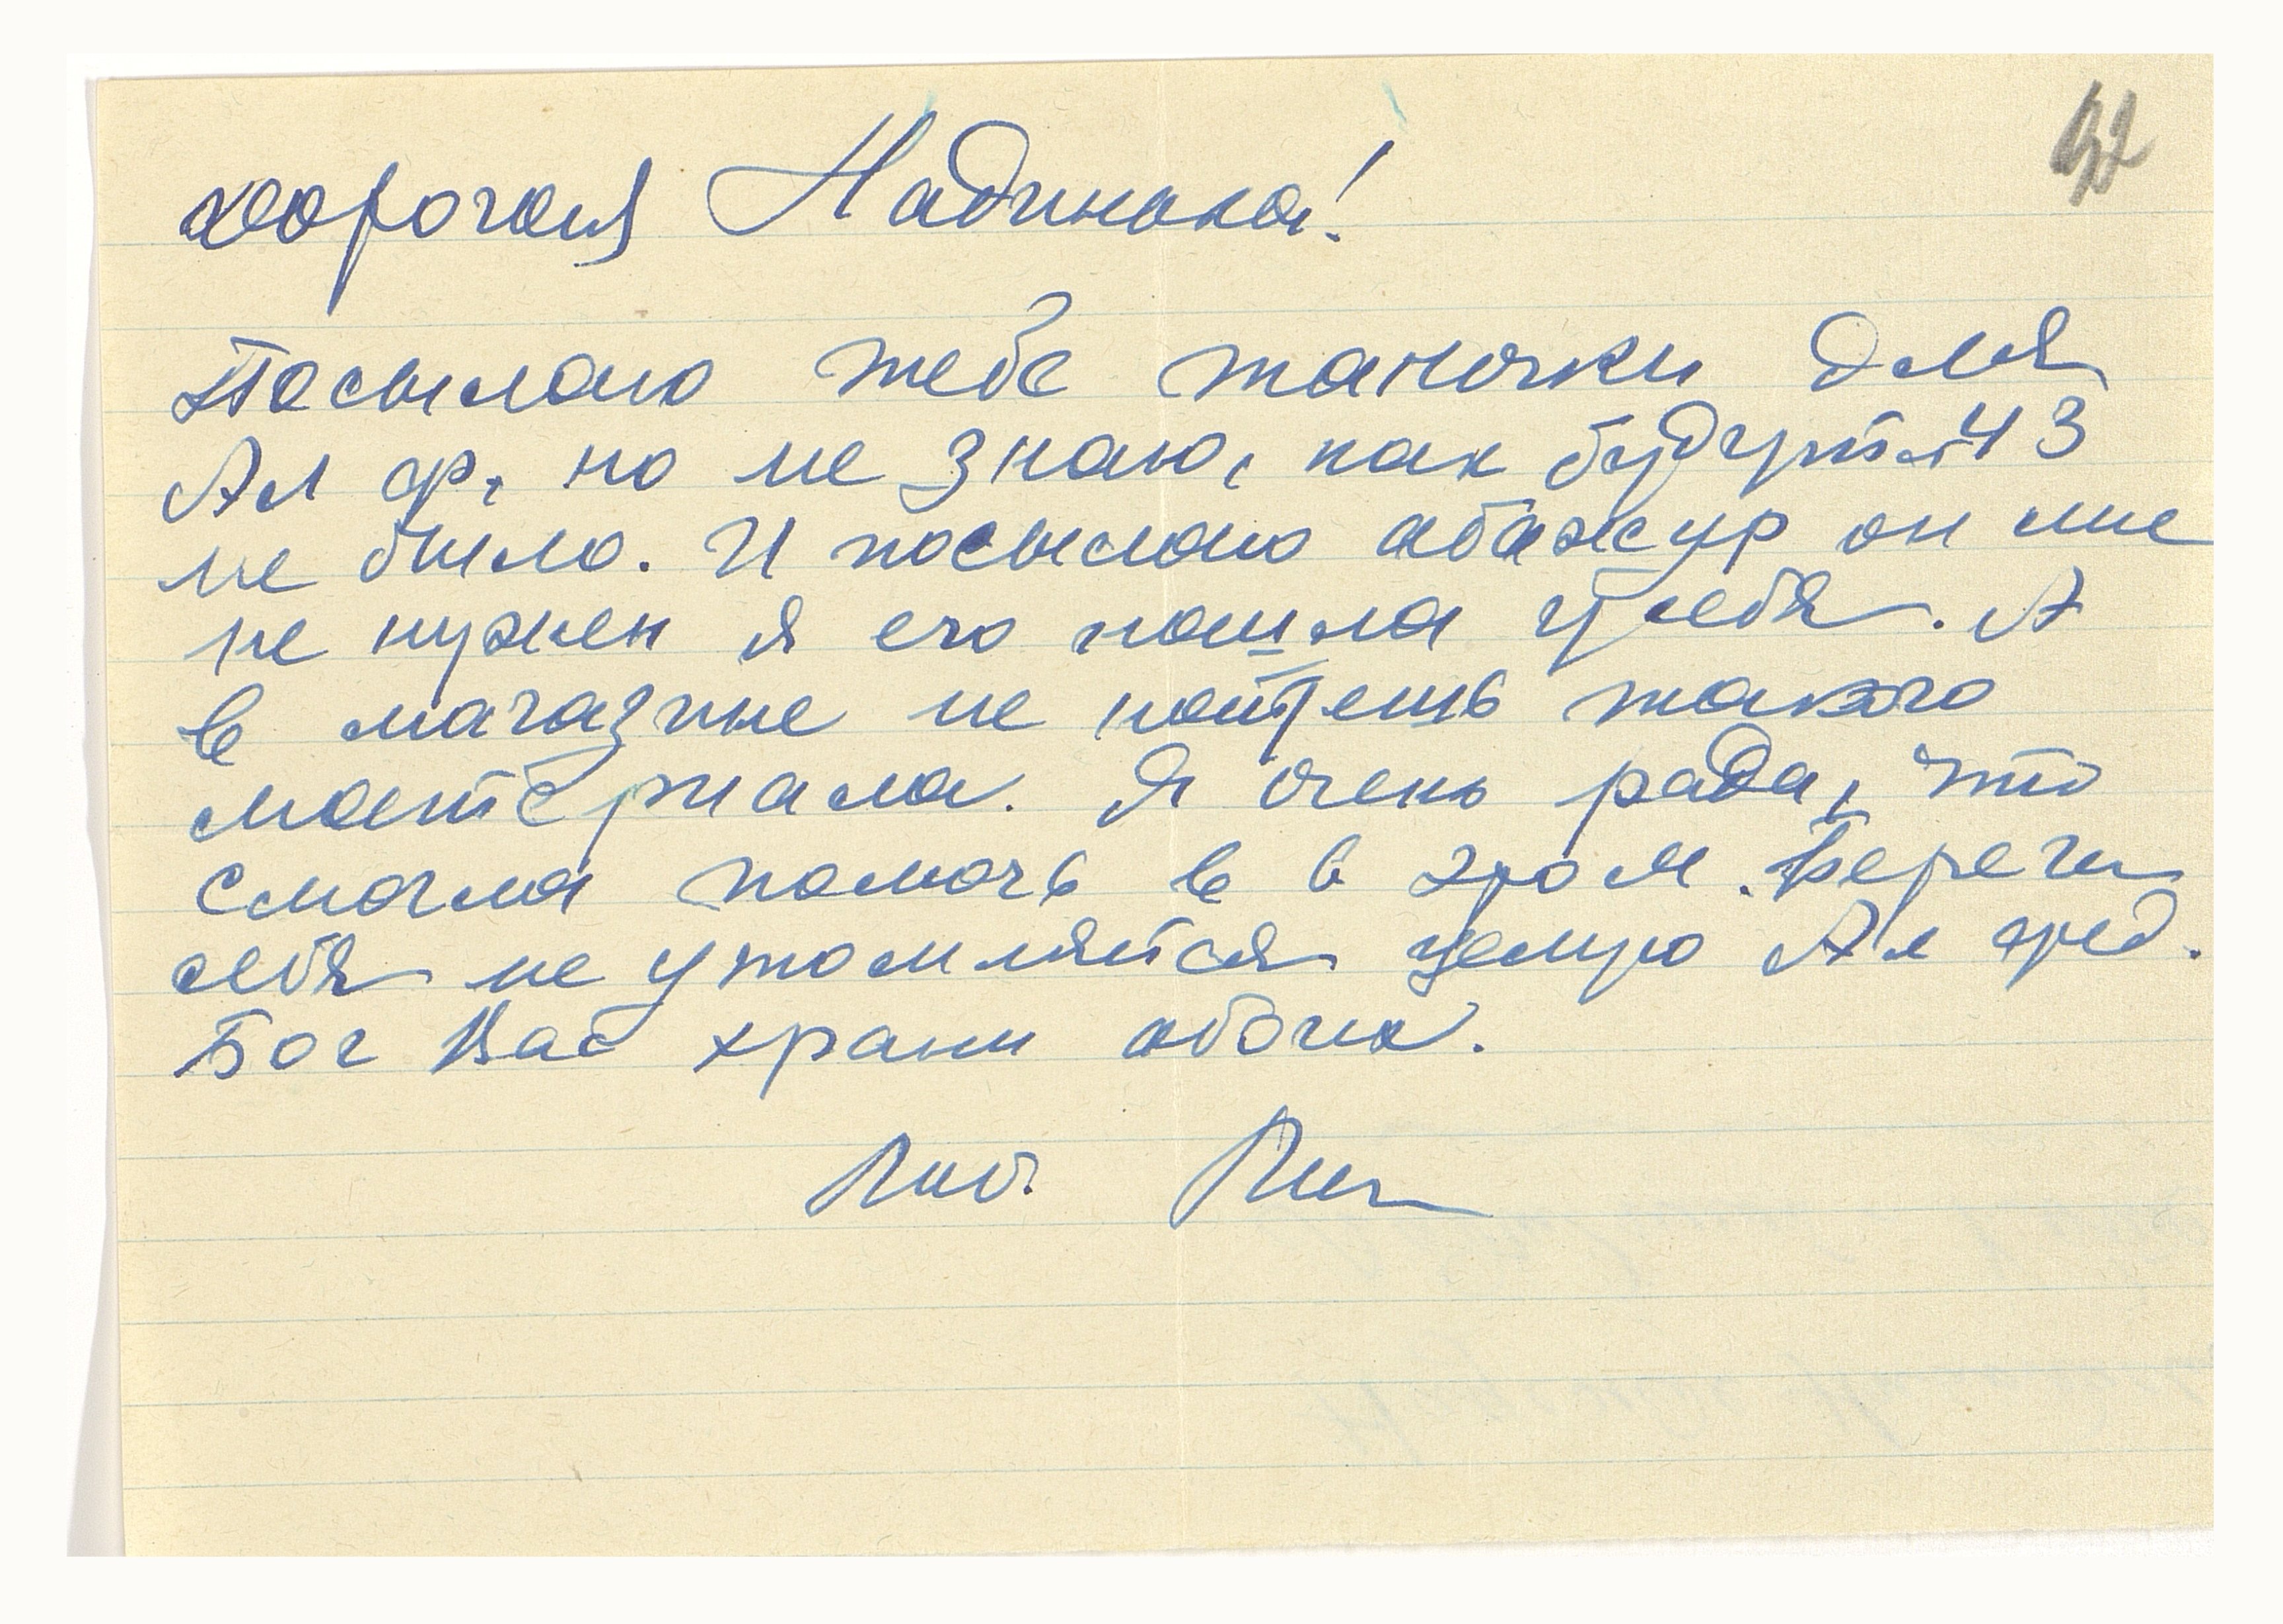 92
дорогая Надинька!
Посылаю тебе тапочки для
Ал ф, но не знаю, как будут 43
не было. И посылаю абажур он мне
не нужен я его нашла у себя. А
в магазине не найдешь такого
материала. Я очень рада, что
смогла помочь в в этом. Береги
себя не утомляйся целую Ал фед.
Бог Вас храни обоих.
Люб.